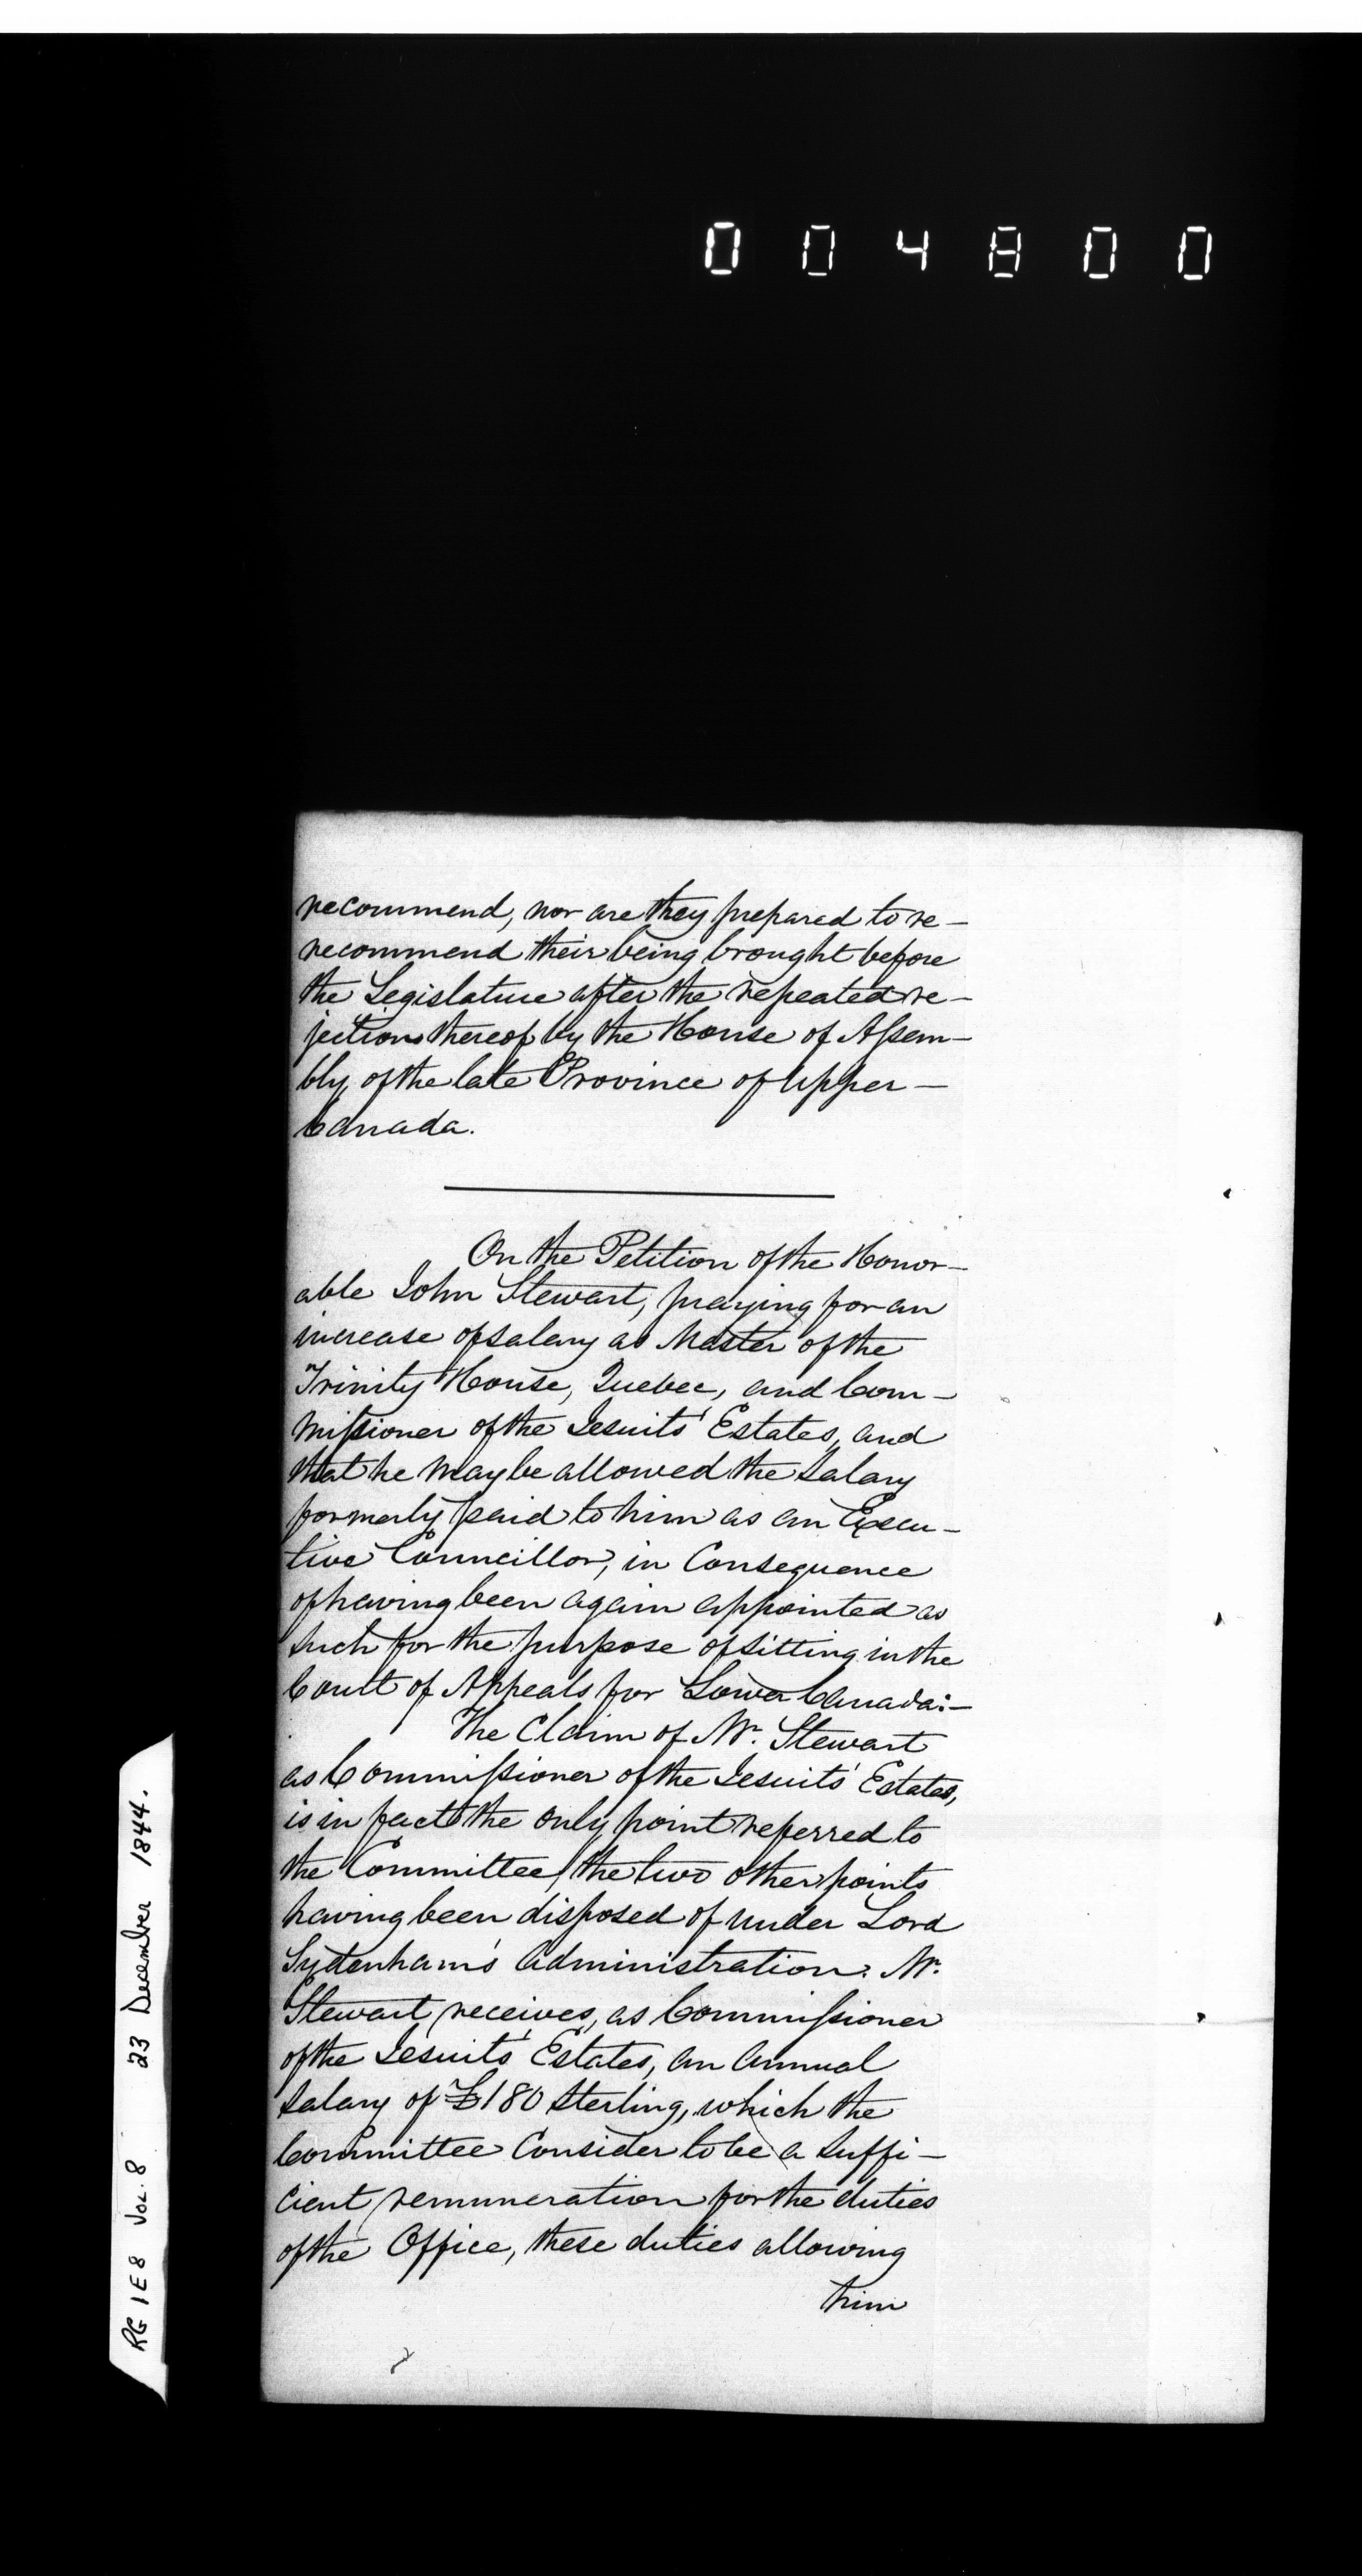 004800
recommend, nor are they prepared to re-
recommend their being brought before
the Legislature after the repeated re-
jections thereof by the House of Assem-
bly, of the late Province of Upper-
Canada.
On the Petition of the Honor-
able John Stewart, praying for an
increase of salary as Master of the
Trinity House, Quebec, and Com-
missioner of the Jesuits' Estates, and
that he may be allowed the Salary
formerly paid to him as an Execu-
tive Councillor, in Consequence
of having been again appointed as
such for the purpose of sitting in the
Court of Appeals for Lower Canada:-
The Claim of Mr. Stewart
as Commissioner of the Jesuits' Estates,
is in fact the only point referred to
the Committee, the two other points
having been disposed of under Lord
Sydenham's Administration. Mr.
Stewart receives, as Commissioner
of the Jesuits' Estates, an annual
Salary of £180 Sterling, which the
Committee Consider to be a suffi-
cient remuneration for the duties
of the Office, these duties allowing
him
RG 1 E 8 Vol. 8 23 December 1844.